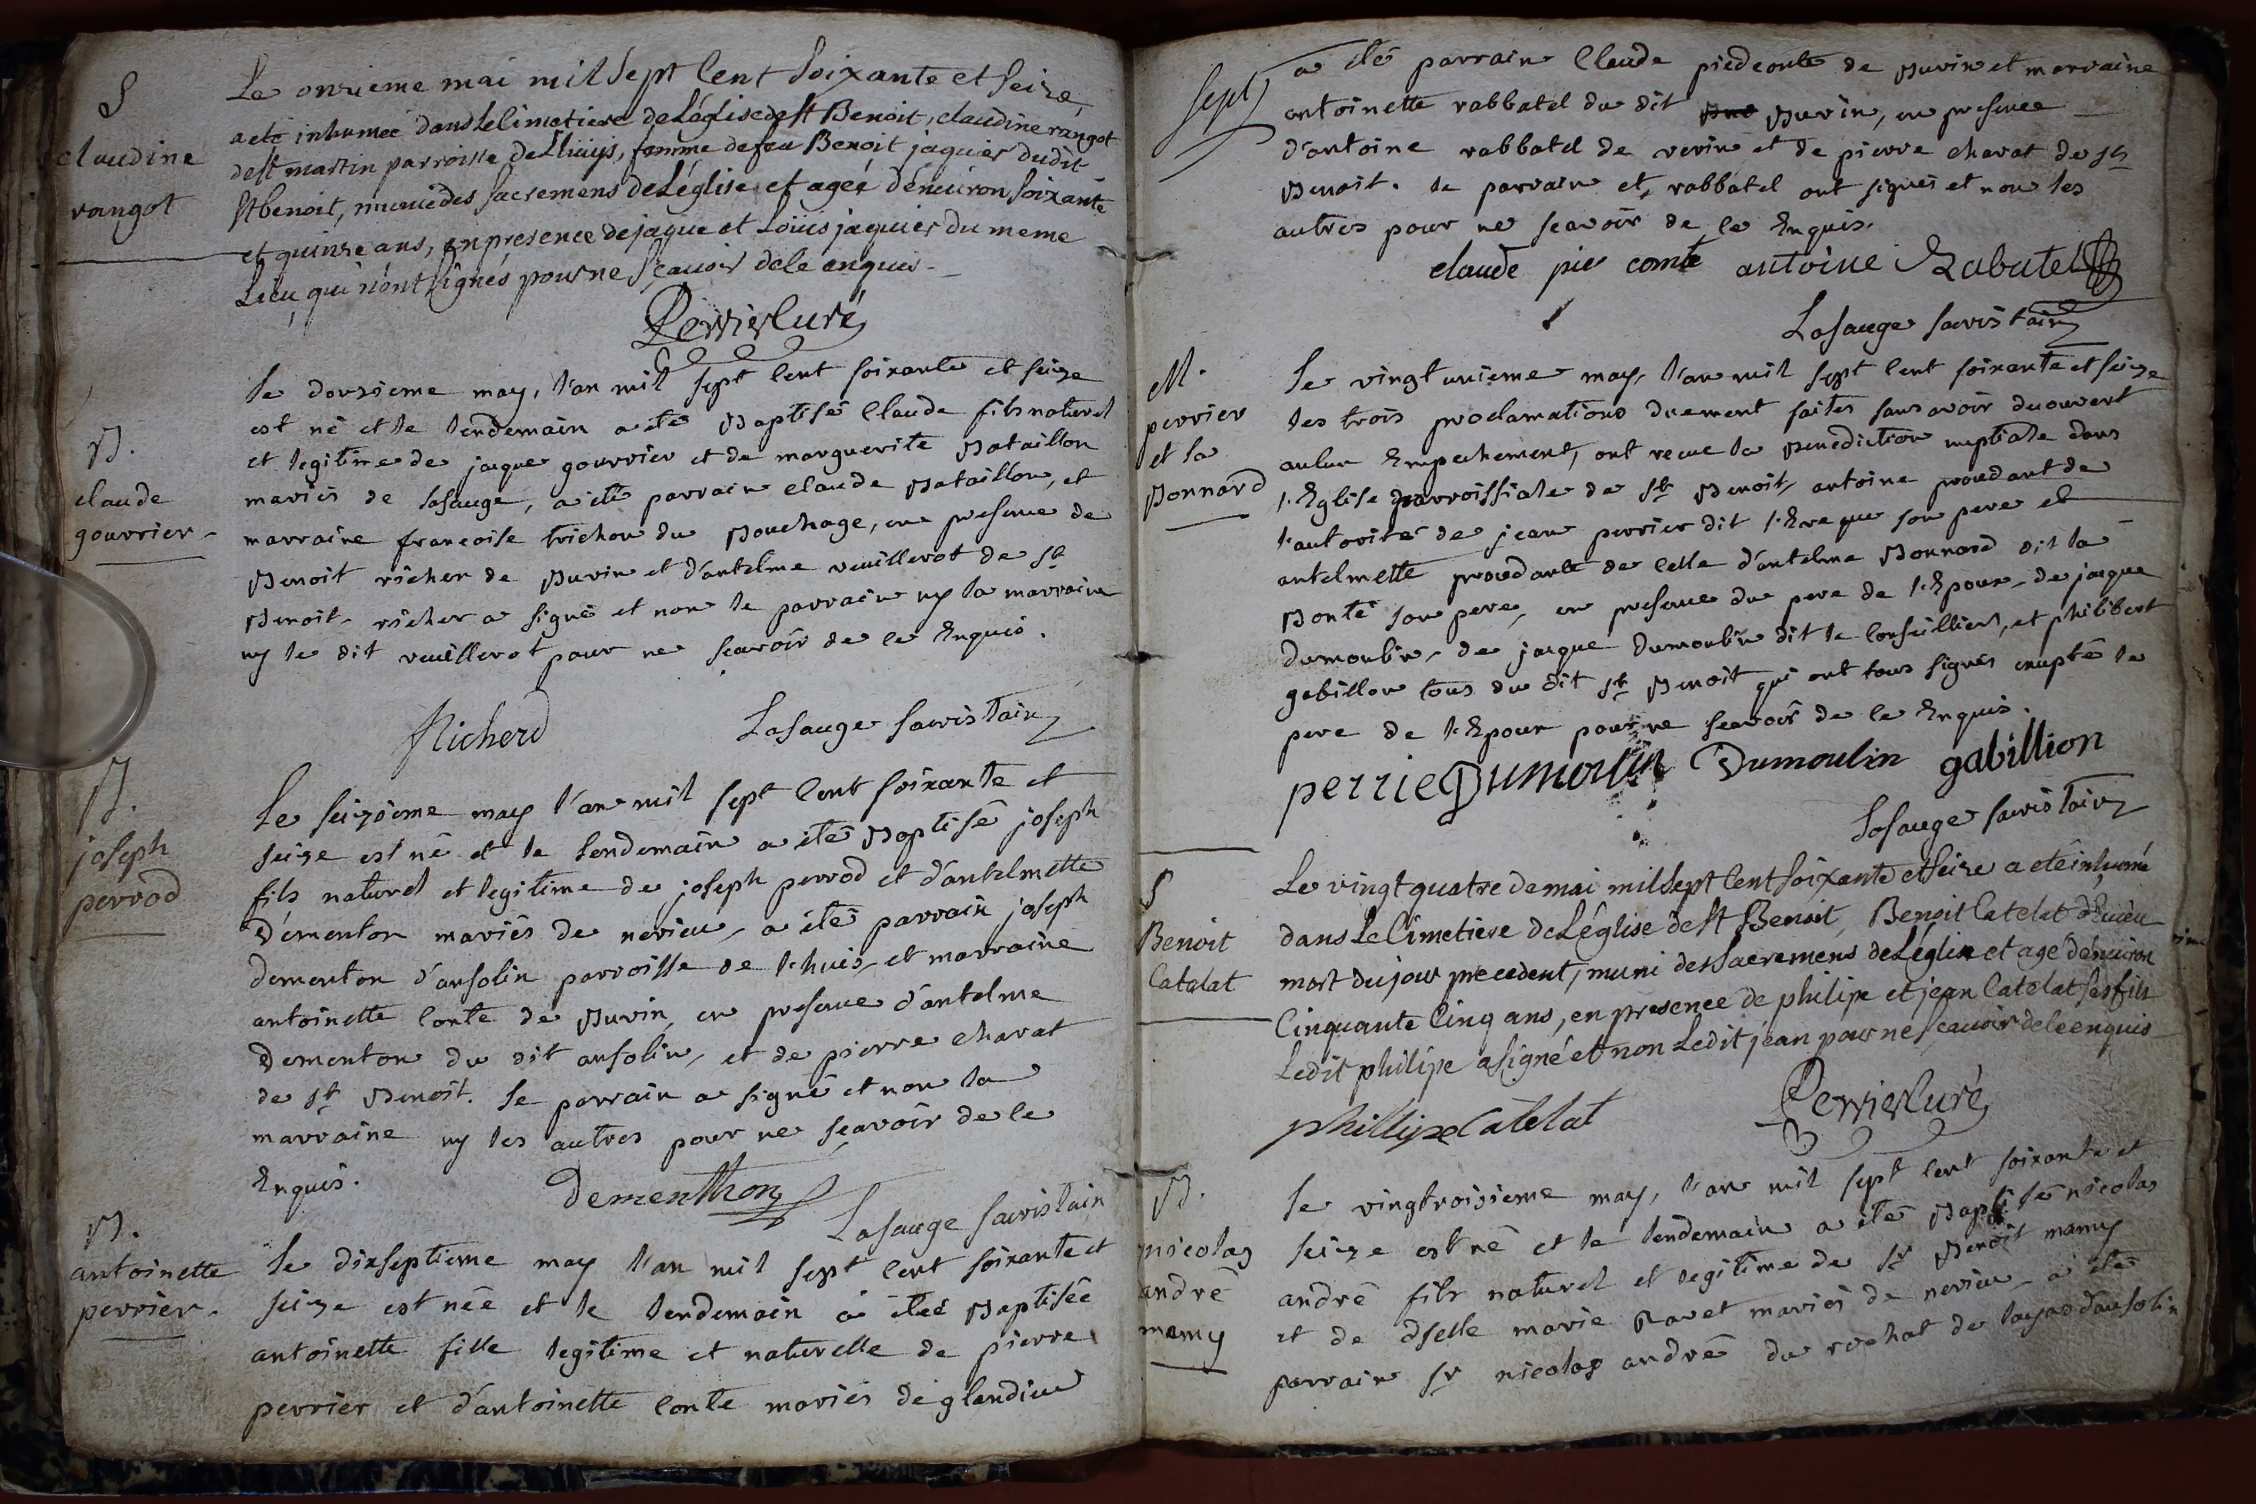 S
claudine
rangot
Le onzieme mai mil sept Cent Soixante et Seize,
a eté inhumée dans Le Cimetiere de Léglise de St Benoit, claudine rangot
de St martin parroisse de Lhuys, femme de feu Benoit jaquier dudit
St benoit, munie des Sacremens de Léglise et ageé d'énviron Soixante
et quinze ans, en presence de jaque et Loüis jaquier du meme
Lieu qui n'ont Signés pour ne Sçauoir de le enquis.
Perrier Curé
B.
claude
gourrier.
Le douzieme may, l'an mil sept Cent soixante et seize
est né et le lendemain a été Baptisé Claude fils naturel
et legitime de jaque gourrier et de marguerite Bataillon
mariés de Lasauge, a été parrain claude Bataillon, et
marraine françoise trichon du Bouchage, en presence de
Benoit richer de Buvin et d'antelme veuillerot de St
Benoit. richer a signé et non le parrain ny la marraine
ny le dit veuillerot pour ne sçavoir de ce Enquis.
Richerd Lasauge sacristain
B.
joseph
perrod
Le seizieme may l'an mil sept Cent soixante et
seize est né et le lendemain a été Baptisé joseph
fils naturel et legitime de joseph perrod et d'antelmette
Dementon mariés de nerieu, a été parrain joseph
dementon d'ansolin parroisse de Lhuis, et marraine
antoinette Conte de Buvin, en presence d'antelme
Dementon du dit ansolin, et de pierre Charat
de St Benoit. Le parrain a signé et non la
marraine ny les autres pour ne sçavoir de ce
Enquis.
Dementhon Lasauge sacristain
B.
antoinette
perrier.
Le dixseptieme may l'an mil sept Cent soixante et
seize est née et le lendemain a été Baptisée
antoinette fille legitime et naturelle de pierre
perrier et d'antoinette Conte mariés de glandieu
sept
a été parrain Claude piedconte de Buvin et marraine
antoinette rabbatel du dit Buvin, en presence
d'antoine rabbatel de verin et de pierre charat de St
Benoit. le parrain et rabbatel ont signés et non les
autres pour ne scavoir de ce Enquis.
claude pie comte antoine Rabatel
Lasauge sacristain
M.
perrier
et la
Bonnard
Le vingt unieme may, l'an mil sept Cent soixante et seize
les trois proclamations duement faites sans avoir decouvert
aucun Empechement, ont recue la Benediction nuptiale dans
l'Eglise parroissiale de St Benoit, antoine procedant de
l'autorité de jean perrier dit l'Eveque son pere et
antelmette procedante de celle d'antelme Bonnard dit la
Bonté son pere, en presence du pere de l'Epoux, de jaque
dumoulin, de jaque Dumoulin dit le Conseillier, et philibert
gabillon tous du dit St Benoit qui ont tous signés excepté le
pere de l'Epoux pour ne scavoir de ce Enquis.
perrie Dumoulin Dumoulin gabillion
Lasauge sacristain
S
Benoit
Catelat
Le vingt quatre de mai mil Sept Cent Soixante et Seize a eté inhumé
dans Le Cimetiere de Léglise de St Benoit, Benoit Catelat d'Evieu
mort du jour precedent, muni des Sacremens de Léglise et agé d'énviron
Cinquante Cinq ans, en presence de philipe et jean Catelat Ses fils
Ledit philipe a Signé et non Ledit jean pour ne Sçauoir de le enquis
phillipe Catelat Perrier Curé
B.
nicolas
andré
mamy
Le vingtroisieme may, l'an mil sept Cent soixante et
seize est né et le lendemain a été Baptisé nicolas
andré fils naturel et legitime de sr Benoit mamy
et de dselle marie Ravet mariés de nerieu, a été
parrain sr nicolas andré du rochat de layas d'ansolin